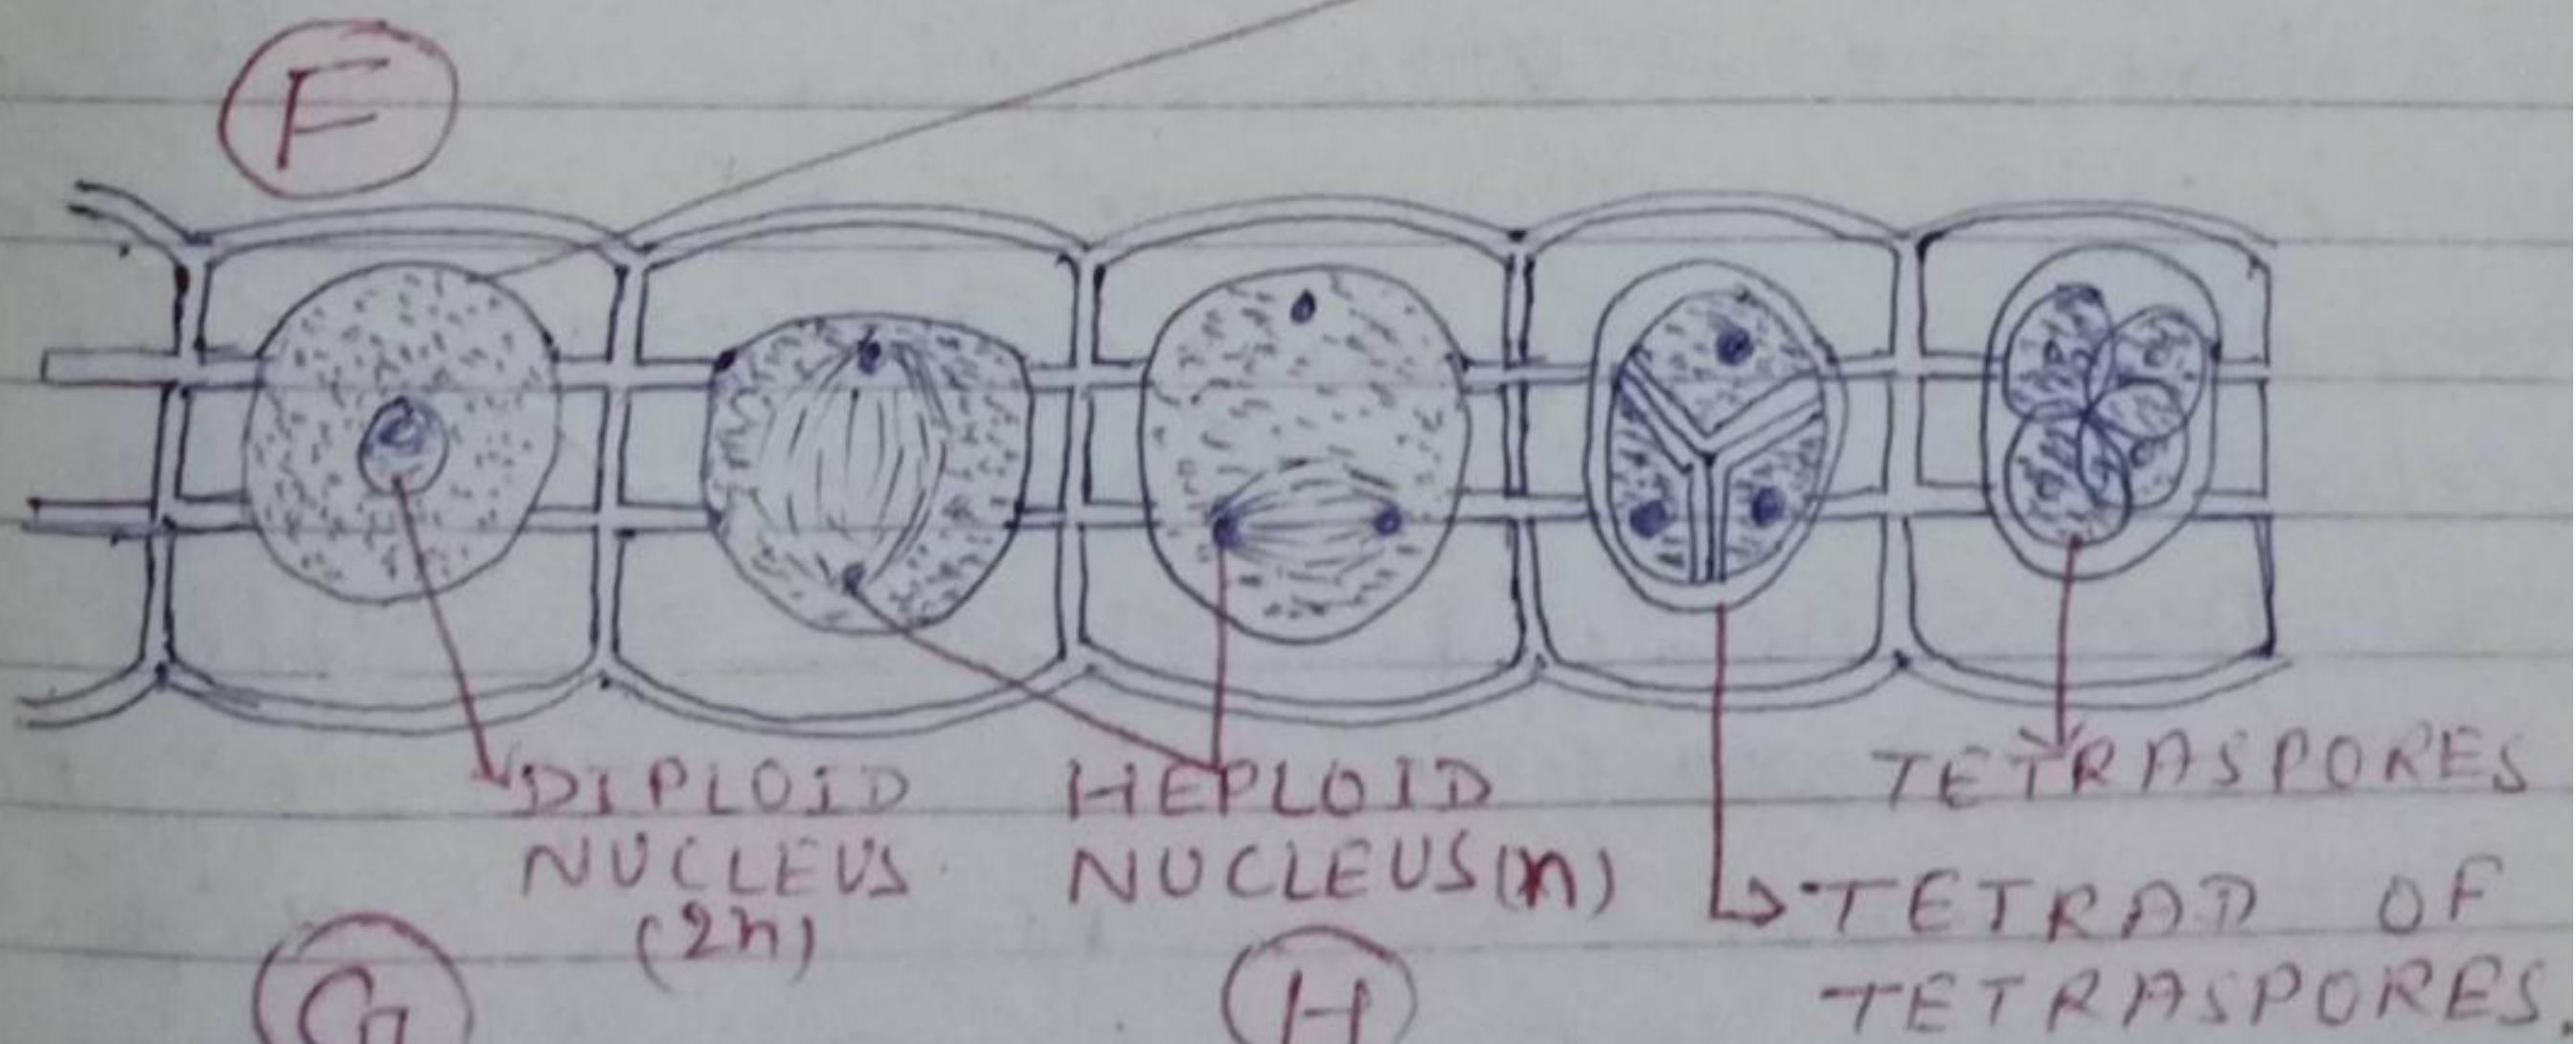 F
DIPLOID
NUCLEUS
(2n)
HEPLOID
NUCLEUS(n)
TETRASPORES
TETRAD OF
TETRASPORES.
G
H